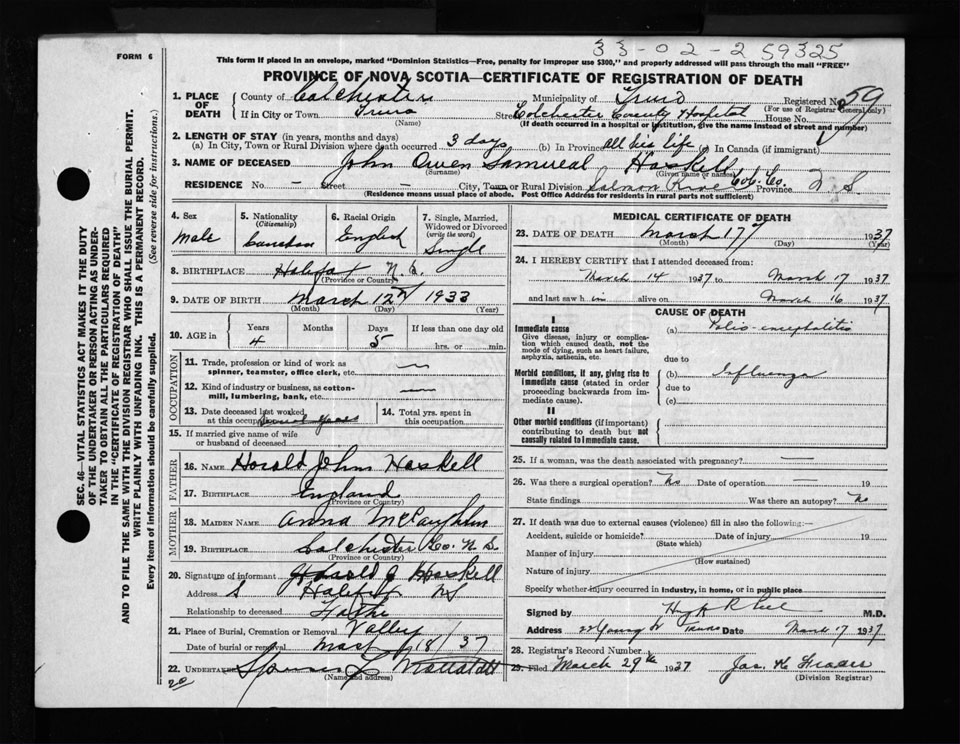 33-02-2 59325
FORM 6
This form if placed in an envelope, marked "Dominion Statistics—Free, penalty for improper use $300," and properly addressed will pass through the mail "FREE"
PROVINCE OF NOVA SCOTIA—CERTIFICATE OF REGISTRATION OF DEATH
1. PLACE OF DEATH County of Colchester Municipality of Truro Registered No. 59
(For use of Registrar General only)
If in City or Town Truro Street Colchester County Hospital House No.
(Name) (If death occurred in a hospital or institution, give the name instead of street and number)
2. LENGTH OF STAY (in years, months and days)
(a) In City, Town or Rural Division where death occurred 3 days (b) In Province all his life (c) In Canada (if immigrant)
3. NAME OF DECEASED John Owen Samureal Haskell
(Surname) (Given name or names)
RESIDENCE No. — Street — City, Town or Rural Division Salmon River Col. Co. Province N S
(Residence means usual place of abode. Post Office Address for residents in rural parts not sufficient)
4. Sex Male
5. Nationality (Citizenship) Canadian
6. Racial Origin English
7. Single, Married, Widowed or Divorced (write the word) Single
8. BIRTHPLACE Halifax N.S.
(Province or Country)
9. DATE OF BIRTH March 12th 1933
(Month) (Day) (Year)
10. AGE in Years 4 Months Days 5 If less than one day old hrs. or min.
OCCUPATION
11. Trade, profession or kind of work as spinner, teamster, office clerk, etc.
12. Kind of industry or business, as cotton-mill, lumbering, bank, etc. —
13. Date deceased last worked at this occupation
14. Total yrs. spent in this occupation.
15. If married give name of wife or husband of deceased
FATHER
16. NAME Harold John Haskell
17. BIRTHPLACE England
MOTHER
18. MAIDEN NAME Anna McLaughlin
19. BIRTHPLACE Colchester Co. N S.
(Province or Country)
20. Signature of informant Harold J Haskell
Address S Halifax NS
Relationship to deceased Father
21. Place of Burial, Cremation or Removal Valley
Date of burial or removal Mar 18/37
22. UNDERTAKER
(Name and address)
MEDICAL CERTIFICATE OF DEATH
23. DATE OF DEATH March 17th 1937
(Month) (Day) (Year)
24. I HEREBY CERTIFY that I attended deceased from:
March 14 1937 to March 17 1937
and last saw him alive on March 16 1937
CAUSE OF DEATH
I
Immediate cause
Give disease, injury or complication which caused death, not the mode of dying, such as heart failure, asphyxia, asthenia, etc.
(a) Polio-encephalitis
due to
Morbid conditions, if any, giving rise to immediate cause (stated in order proceeding backwards from immediate cause).
(b) Influenza
due to
(c)
II
Other morbid conditions (if important) contributing to death but not causally related to immediate cause.
25. If a woman, was the death associated with pregnancy? —
26. Was there a surgical operation? No Date of operation — 19
State findings Was there an autopsy? No
27. If death was due to external causes (violence) fill in also the following:—
Accident, suicide or homicide? Date of injury 19
(State which)
Manner of injury
(How sustained)
Nature of injury
Specify whether injury occurred in industry, in home, or in public place
Signed by M.D.
Address Young St Truro Date March 17 1937
28. Registrar's Record Number
29. Filed March 29th 1937 Jas. K Fraser
(Division Registrar)
SEC. 46—VITAL STATISTICS ACT MAKES IT THE DUTY OF THE UNDERTAKER OR PERSON ACTING AS UNDERTAKER TO OBTAIN ALL THE PARTICULARS REQUIRED IN THE "CERTIFICATE OF REGISTRATION OF DEATH" AND TO FILE THE SAME WITH THE DIVISION REGISTRAR WHO SHALL ISSUE THE BURIAL PERMIT.
WRITE PLAINLY WITH UNFADING INK. THIS IS A PERMANENT RECORD.
Every item of information should be carefully supplied. (See reverse side for instructions.)